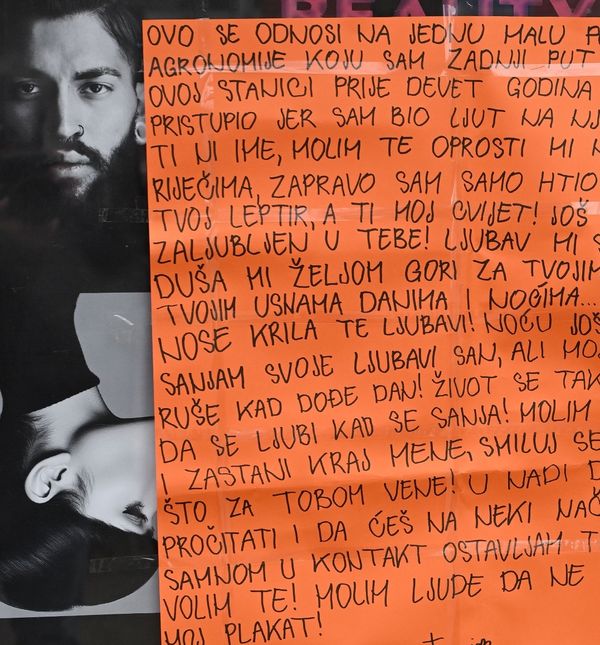 REALITY
OVO SE ODNOSI NA JEDNU MALU
AGRONOMIJE KOJU SAM ZADNJI PUT
OVOJ STANICI PRIJE DEVET GODINA
PRISTUPIO JER SAM BIO LJUT NA NJ
TI NI IME, MOLIM TE OPROSTI MI
RIJEČIMA, ZAPRAVO SAM SAMO HTIO
TVOJ LEPTIR, A TI MOJ CVIJET! JOŠ
ZALJUBLJEN U TEBE! LJUBAV MI S
DUŠA MI ŽELJOM GORI ZA TVOJIM
TVOJIM USNAMA DANIMA I NOĆIMA...
NOSE KRILA TE LJUBAVI! NOĆU JOŠ
SANJAM SVOJE LJUBAVI SAN, ALI MOJ
RUŠE KAD DOĐE DAN! ŽIVOT SE TAK
DA SE LJUBI KAD SE SANJA! MOLIM
I ZASTANI KRAJ MENE, SMILUJ SE
ŠTO ZA TOBOM VENE! U NADI D
PROČITATI I DA ĆEŠ NA NEKI NAČ
SAMNOM U KONTAKT OSTAVLJAM T
VOLIM TE! MOLIM LJUDE DA NE
MOJ PLAKAT!